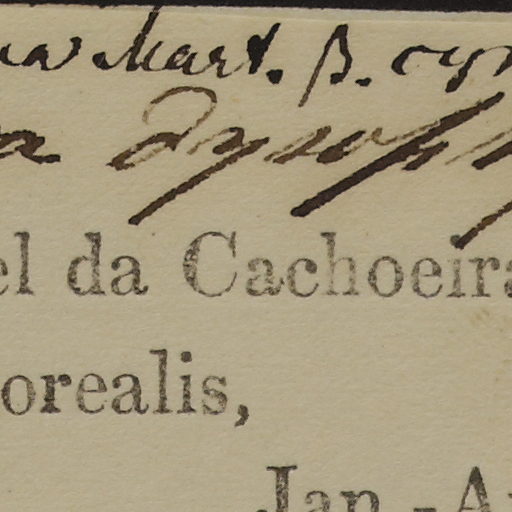 Mart. β. cyn
el da Cachoeira
orealis,
Jan.-A